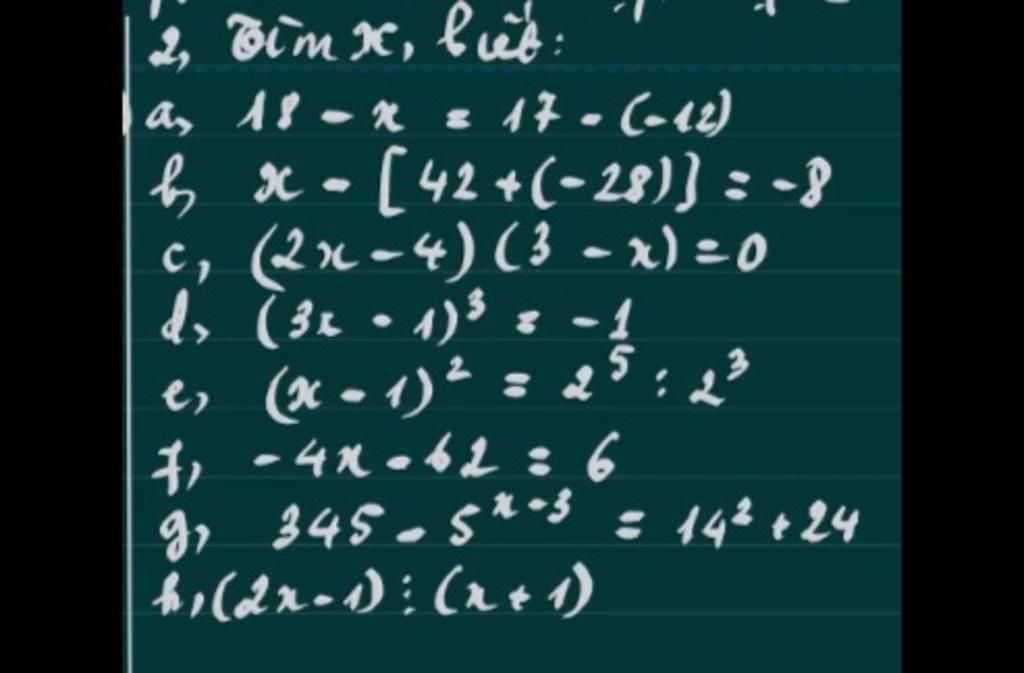 2, Tìm x, biết:
a, 18 - x = 17 - (-12)
b, x - [42 + (-28)] = -8
c, (2x - 4) (3 - x) = 0
d, (3x - 1)³ = -1
e, (x - 1)² = 2⁵ : 2³
f, -4x - 62 = 6
g, 345 - 5ˣ⁻³ = 14² + 24
h, (2x - 1) ⋮ (x + 1)